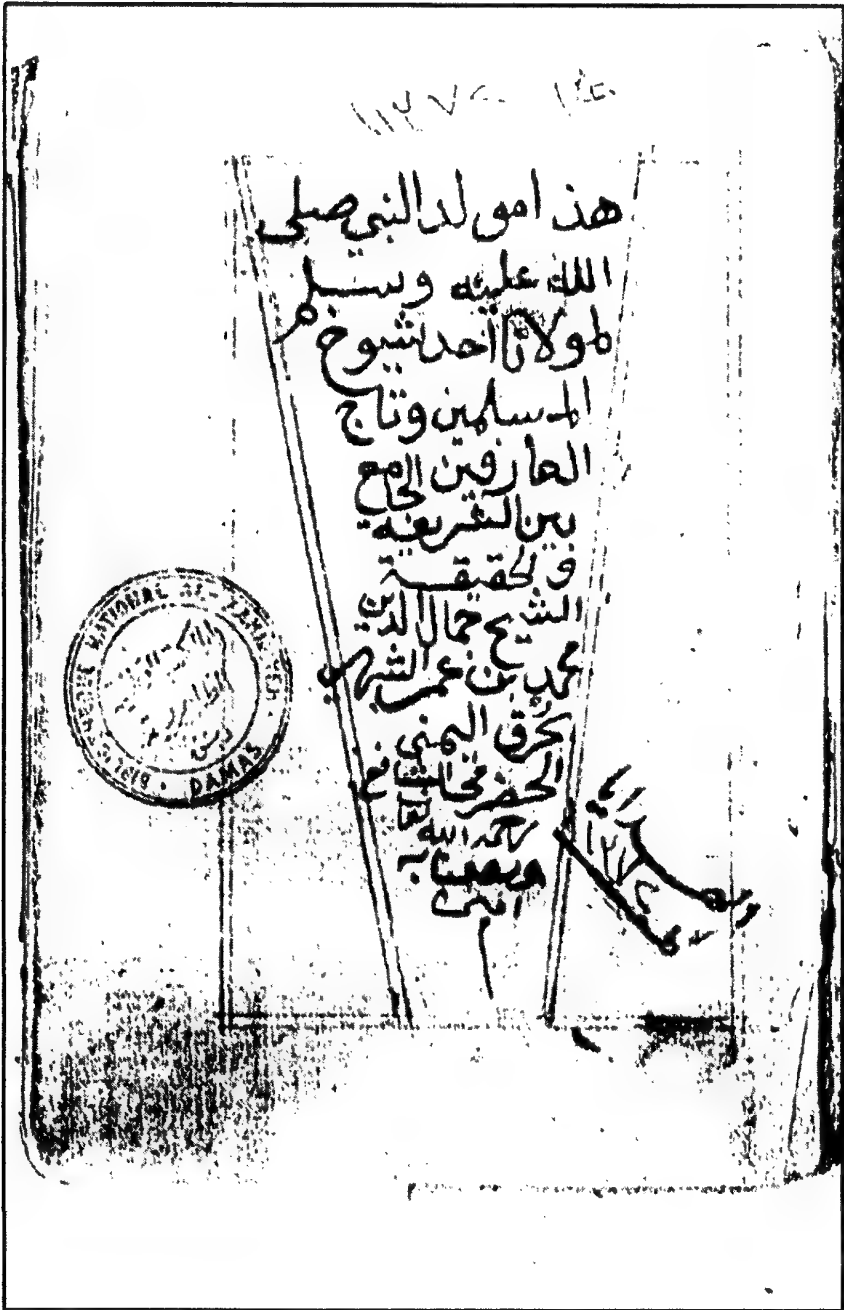 ١١٢٧٠
هذا مولد النبي صلى
الله عليه وسلم
لمولانا أحد شيوخ
المسلمين وتاج
العارفين الجامع
بين الشريعة
والحقيقة
الشيخ جمال الدين
محمد بن عمر الشهير
بحرق اليمني
الحضرمي الشافعي
رحمه الله تعالى
ونفعنا به
امين
BIBLIOTHEQUE NATIONAL AL-ZAHIRIYEH
DAMAS